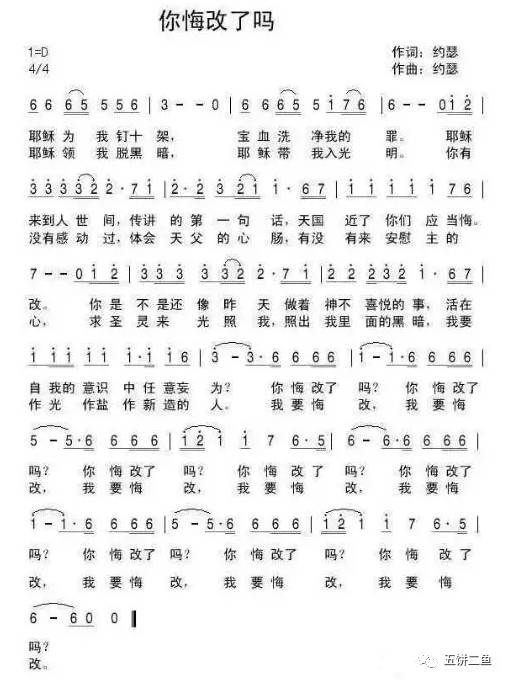 你悔改了吗
1=D 作词：约瑟
4/4 作曲：约瑟
6 6 6 5 5 5 6 | 3 - - 0 | 6 6 6 5 1 7 6 | 6 - - 0 1 2 |
耶稣为我钉十架， 宝血洗净我的罪。耶稣
耶稣领我脱黑暗， 耶稣带我入光明。你有
3 3 3 3 2 2 · 7 1 | 2 · 2 3 2 1 1 · 6 7 | 1 1 1 1 1 7 6 |
来到人世间，传讲的第一句话，天国近了你们应当悔。
没有感动过，体会天父的心肠，有没有来安慰主的
7 - - 0 1 2 | 3 3 3 3 2 2 · 7 1 | 2 · 2 3 2 1 · 6 7 |
改。你是不是还像昨天做着神不喜悦的事，活在
心，求圣灵来光照我，照出我里面的黑暗，我要
1 1 1 1 1 · 1 1 6 | 3 - 3 · 6 6 6 6 | 1 - 1 · 6 6 6 6 |
自我的意识中任意妄为？你悔改了吗？你悔改了
作光作盐作新造的人。我要悔改，我要悔
5 - 5 · 6 6 6 6 | 1 2 1 1 7 · 6 6 6 | 3 - 3 · 6 6 6 6 |
吗？你悔改了吗？你悔改了吗？你悔改了
改，我要悔改，我要悔改，我要悔
1 - 1 · 6 6 6 6 | 5 - 5 · 6 6 6 6 | 1 2 1 1 7 6 · 5 |
吗？你悔改了吗？你悔改了吗？你悔改了
改，我要悔改，我要悔改，我要悔
6 - 6 0 0 0 ‖
吗？
改。
五饼二鱼